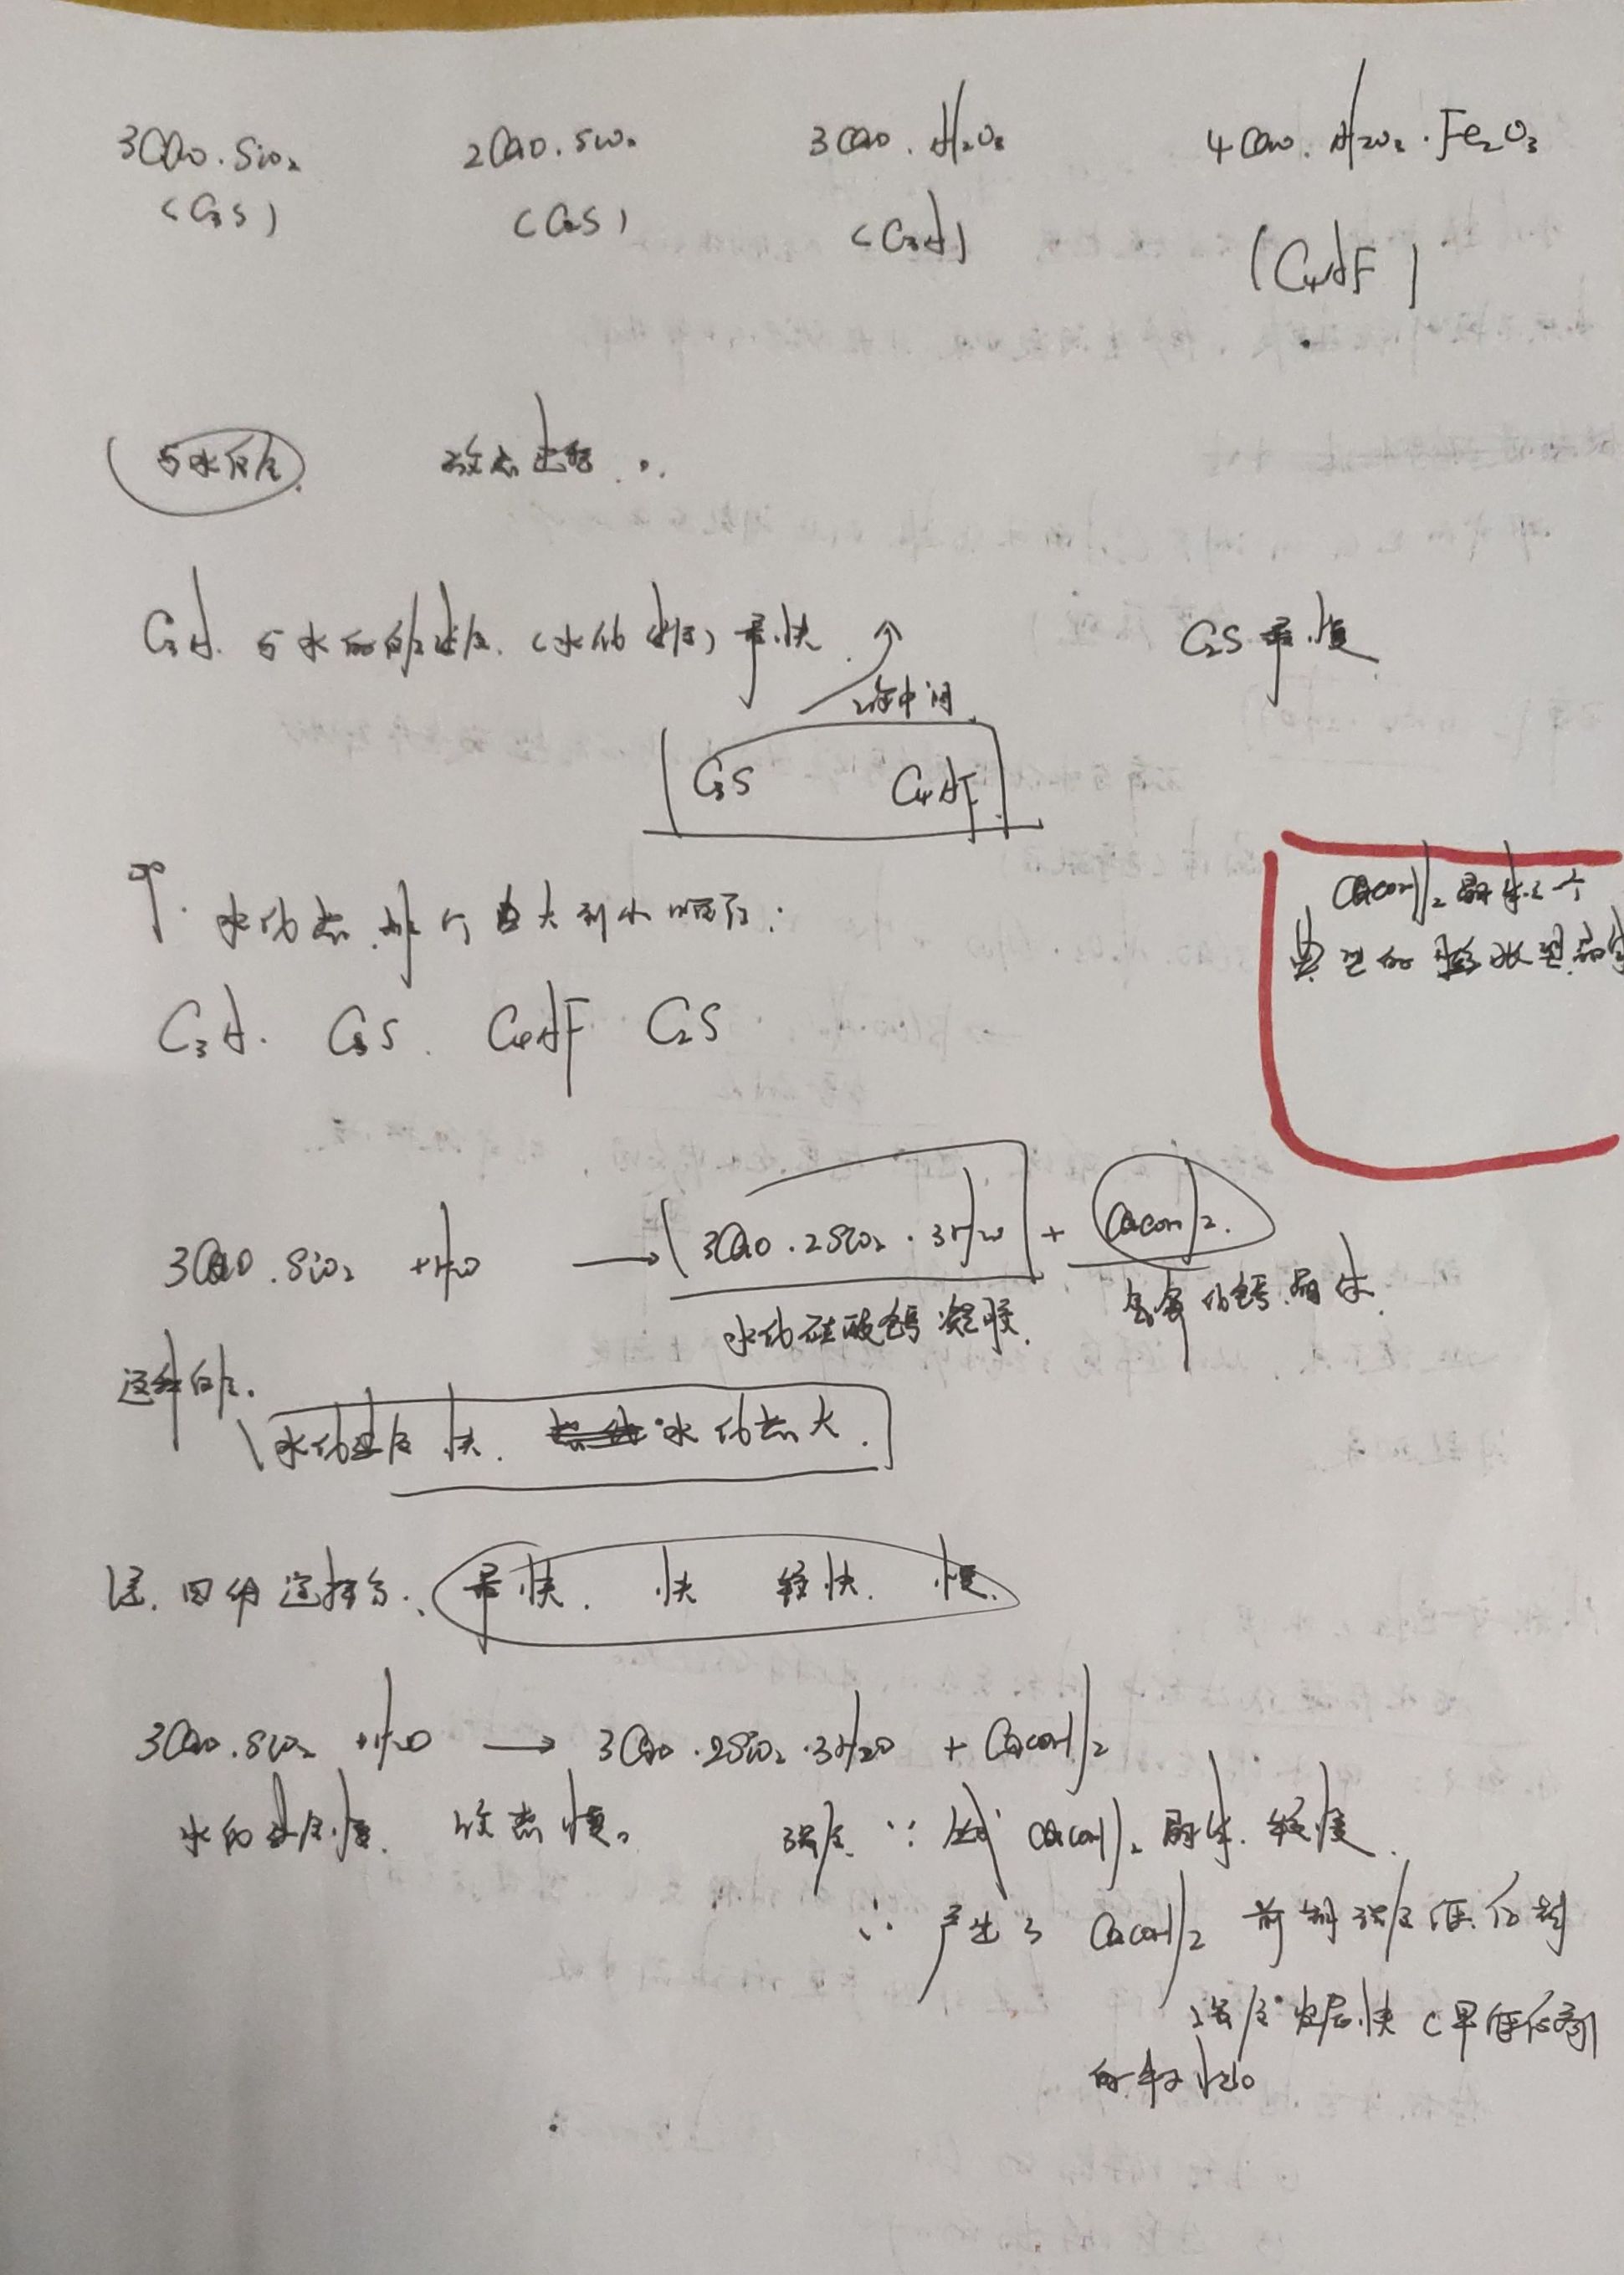 3CaO·SiO₂ 2CaO·SiO₂ 3CaO·Al₂O₃ 4CaO·Al₂O₃·Fe₂O₃
(C₃S) (C₂S) (C₃A) (C₄AF)
与水反应 放热
C₃A 与水的反应速度(水化速度)最快 C₂S最慢
中间
C₃S C₄AF
水化热 由大到小顺序:
C₃A. C₃S. C₄AF C₂S
Ca(OH)₂晶体是个
典型的膨胀型晶体
3CaO·SiO₂ +H₂O → 3CaO·2SiO₂·3H₂O + Ca(OH)₂.
水化硅酸钙凝胶. 氢氧化钙晶体.
这种反应.
水化速度快. 水化热大.
最快. 快 较快. 慢.
3CaO·SiO₂ +H₂O → 3CaO·2SiO₂·3H₂O + Ca(OH)₂
水化速度慢. 放热慢。 强度 ∵ 生成 Ca(OH)₂晶体. 较慢.
∴ 产生了 Ca(OH)₂ 前期强度低.后期
强度发展快(早低后高)
的特性。